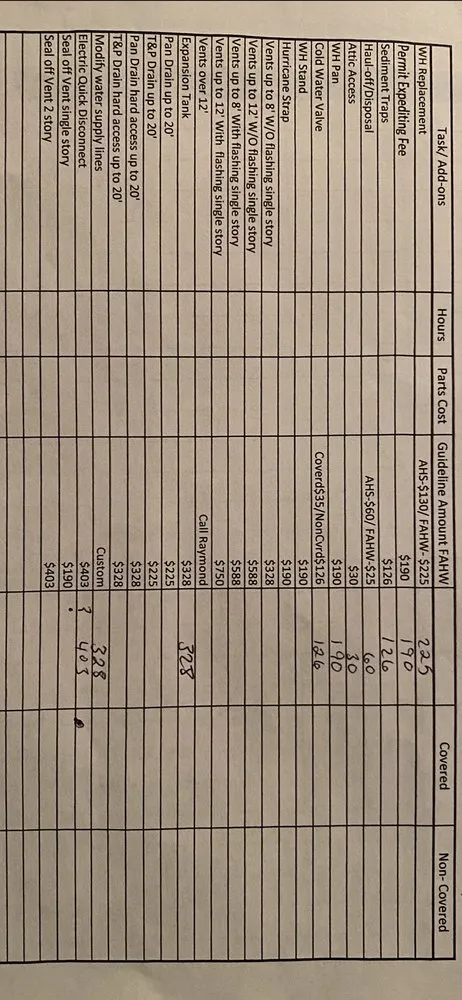 Task/ Add-ons Hours Parts Cost Guideline Amount FAHW Covered Non- Covered
WH Replacement AHS-$130/ FAHW- $225 225
Permit Expediting Fee $190 190
Sediment Traps $126 126
Haul-off/Disposal AHS-$60/ FAHW-$25 60
Attic Access $30 30
WH Pan $190 190
Cold Water Valve Coverd$35/NonCvrd$126 126
WH Stand $190
Hurricane Strap $190
Vents up to 8' W/O flashing single story $328
Vents up to 12' W/O flashing single story $588
Vents up to 8' With flashing single story $588
Vents up to 12' With flashing single story $750
Vents over 12' Call Raymond
Expansion Tank $328 328
Pan Drain up to 20' $225
T&P Drain up to 20' $225
Pan Drain hard access up to 20' $328
T&P Drain hard access up to 20' $328
Modify water supply lines Custom 328
Electric Quick Disconnect $403 ? 403
Seal off Vent single story $190
Seal off Vent 2 story $403